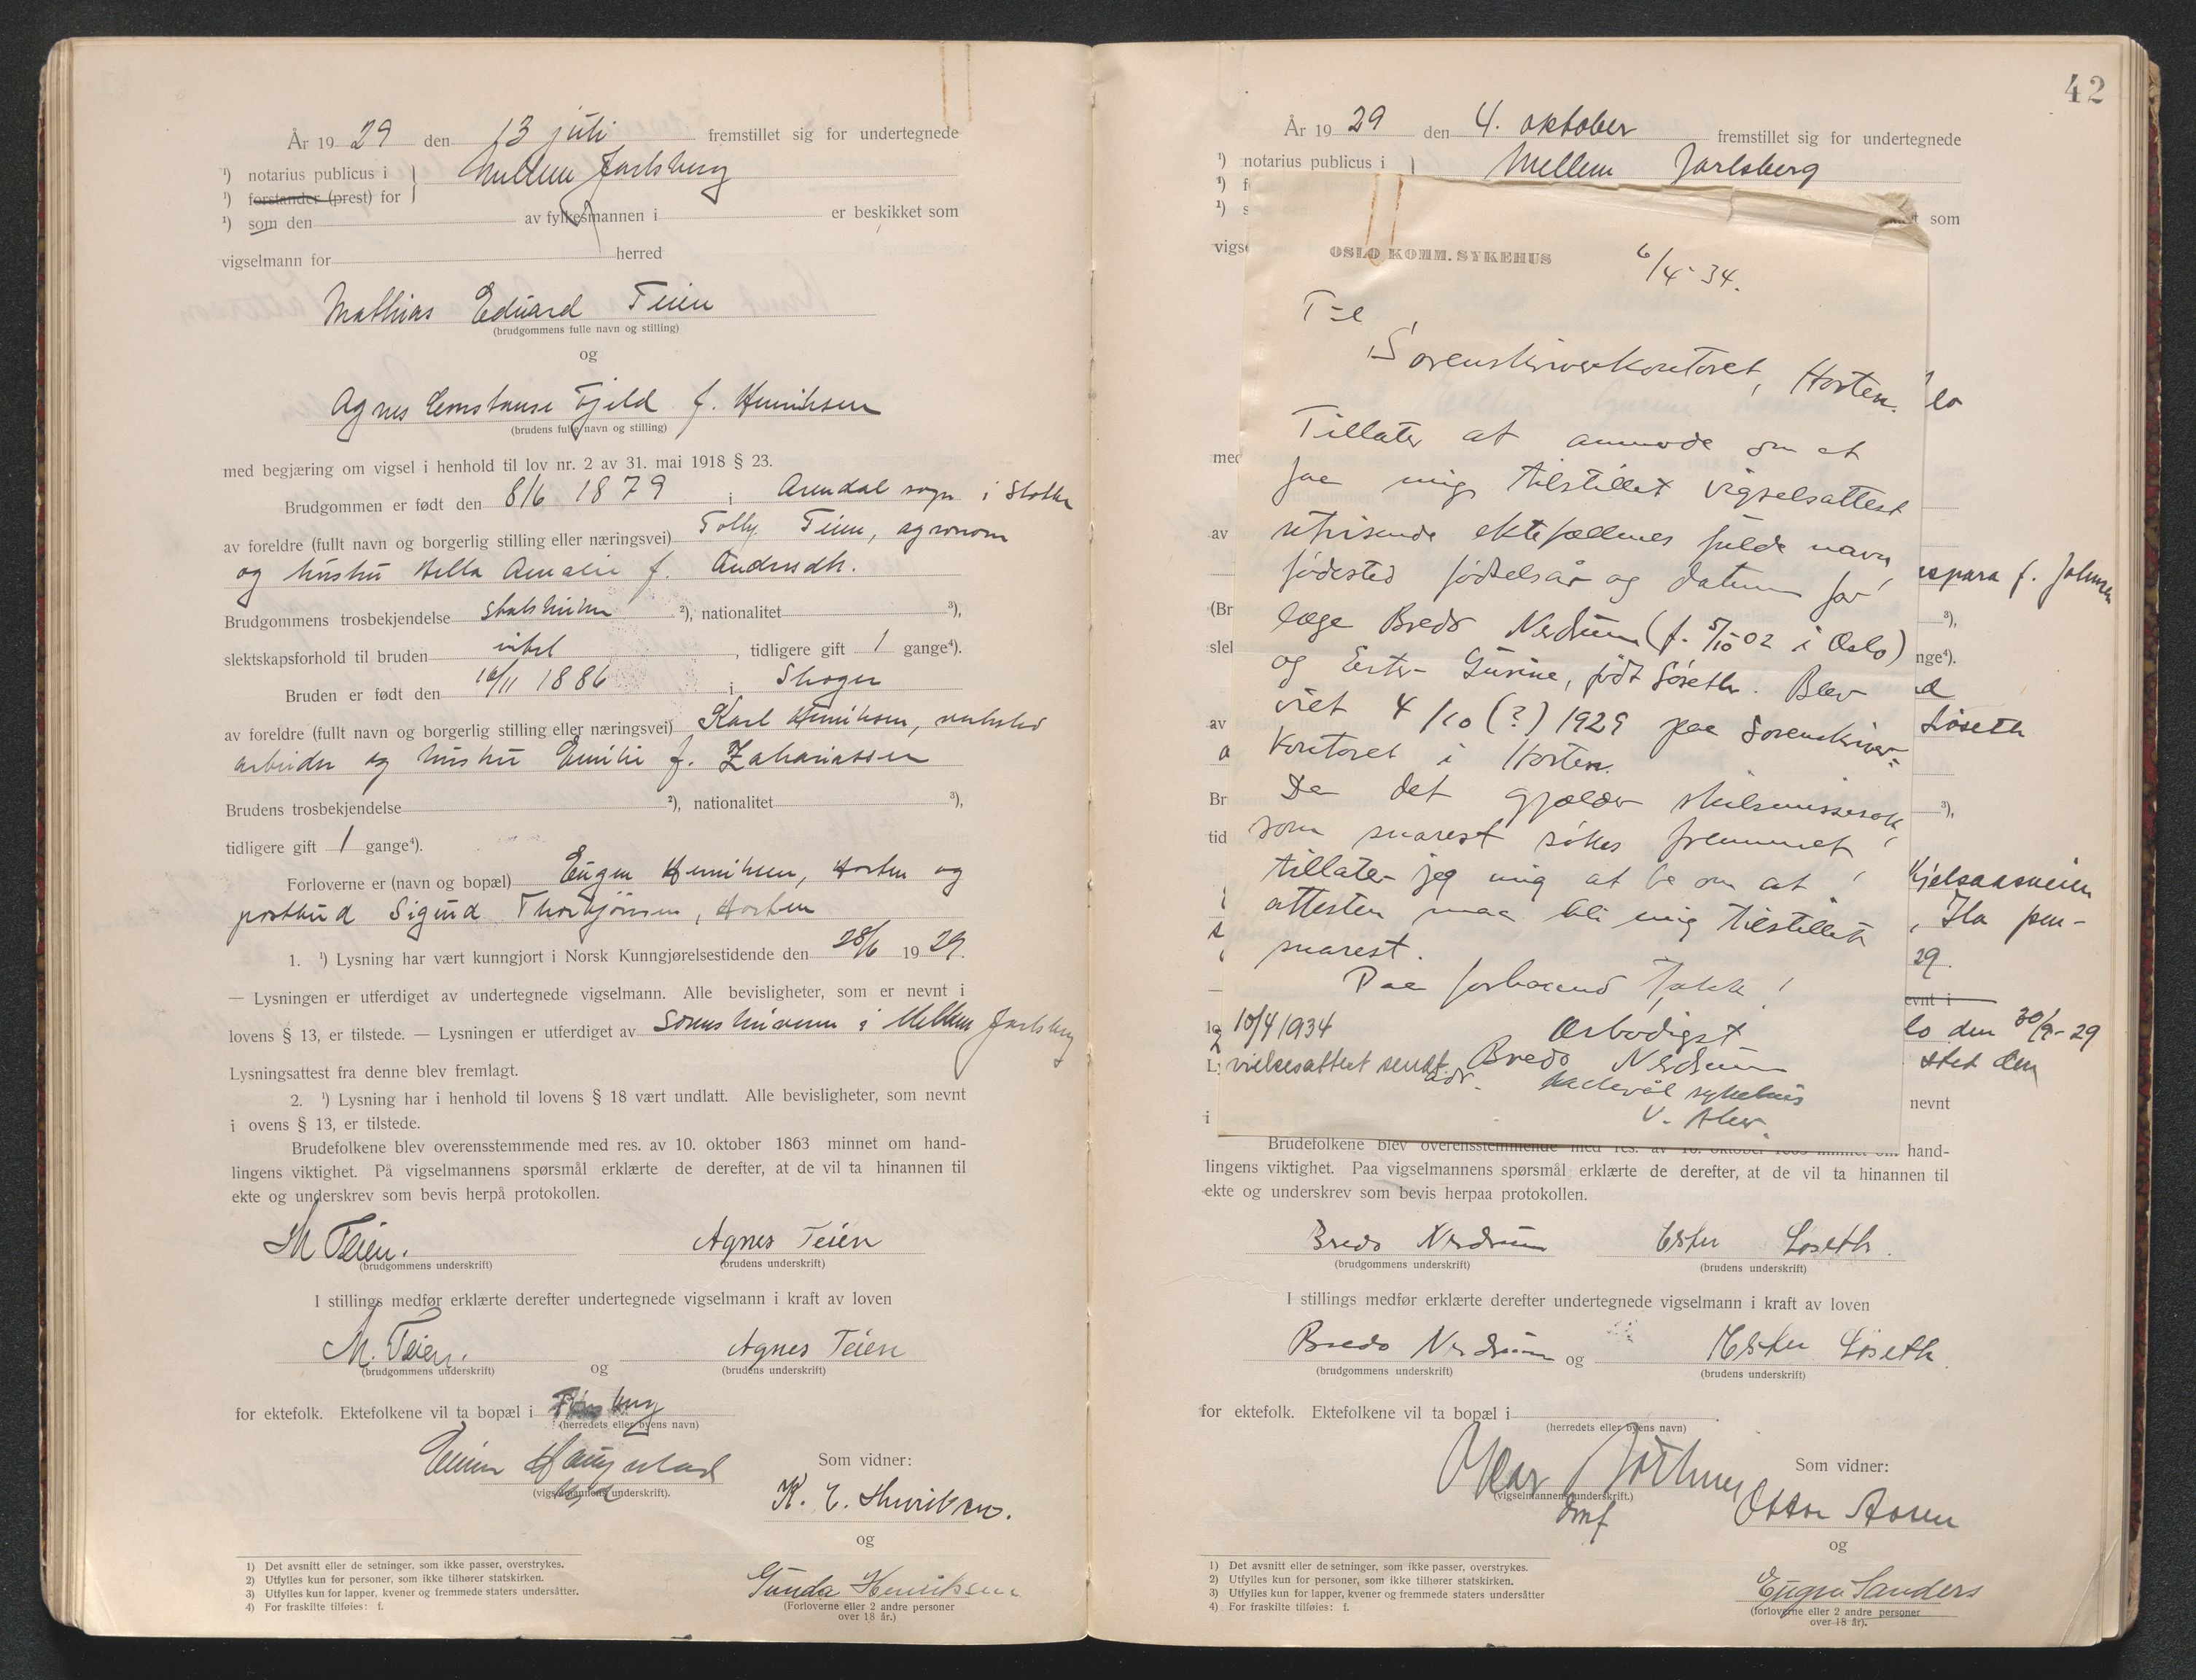 År 19 29 den 13 juli fremstillet sig for undertegnede
¹) notarius publicus i } Mellem Jarlsberg
¹) forstander (prest) for
¹) som den av fylkesmannen i er beskikket som
vigselmann for herred
Mathias Eduard Teien
(brudgommens fulle navn og stilling)
og
Agnes Constanse Fjeld f. Henriksen
(brudens fulle navn og stilling)
med begjæring om vigsel i henhold til lov nr. 2 av 31. mai 1918 § 23.
Brudgommen er født den 8/6 1879 i Arendal sogn i
av foreldre (fullt navn og borgerlig stilling eller næringsvei) Teien, agronom
og hustru Amalie f. Andersdtr.
Brudgommens trosbekjendelse statskirken ²), nationalitet ³),
slektskapsforhold til bruden intet, tidligere gift 1 gange⁴).
Bruden er født den 16/11 1886 i Skoger
av foreldre (fullt navn og borgerlig stilling eller næringsvei) Karl Henriksen,
arbeider og hustru Emilie f. Zakariassen
Brudens trosbekjendelse ²), nationalitet ³),
tidligere gift 1 gange⁴).
Forloverne er (navn og bopæl) Eugen Henriksen, Horten og
postbud Sigurd Thorbjörnsen, Horten
1. ¹) Lysning har vært kunngjort i Norsk Kunngjørelsestidende den 28/6 19 29.
— Lysningen er utferdiget av undertegnede vigselmann. Alle bevisligheter, som er nevnt i
lovens § 13, er tilstede. — Lysningen er utferdiget av Sorenskriveren i Mellem Jarlsberg
Lysningsattest fra denne blev fremlagt.
2. ¹) Lysning har i henhold til lovens § 18 vært undlatt. Alle bevisligheter, som nevnt
i ovens § 13, er tilstede.
Brudefolkene blev overensstemmende med res. av 10. oktober 1863 minnet om hand-
lingens viktighet. På vigselmannens spørsmål erklærte de derefter, at de vil ta hinannen til
ekte og underskrev som bevis herpå protokollen.
M Teien. Agnes Teien
(brudgommens underskrift) (brudens underskrift)
I stillings medfør erklærte derefter undertegnede vigselmann i kraft av loven
M. Teien. og Agnes Teien
(brudgommens underskrift) (brudens underskrift)
for ektefolk. Ektefolkene vil ta bopæl i
(herredets eller byens navn)
Einar Haugestad
(vigselmannens underskrift).
Som vidner:
K. E. Henriksen.
og
Gunda Henriksen
(Forloverne eller 2 andre personer
over 18 år.)
1) Det avsnitt eller de setninger, som ikke passer, overstrykes.
2) Utfylles kun for personer, som ikke tilhører statskirken.
3) Utfylles kun for lapper, kvener og fremmede staters undersåtter.
4) For fraskilte tilføies: f.
42
År 19 29 den 4. oktober fremstillet sig for undertegnede
¹) notarius publicus i } Mellem Jarlsberg
¹) f
¹) s som
vigse
OSLO KOMM. SYKEHUS 6/4-34.
Til
Sorenskriverkontoret, Horten.
Tillater at anmode om at
faae mig tilstillet vigselsattest
utvisende ektefællenes fulde navn,
födested födselsår og datum for
læge Bredo Nerdrum (f. 5/10-02 i Oslo)
og Ester Gurine, födt Löseth. Blev
viet 4/10 (?) 1929 paa Sorenskriver-
kontoret i Horten.
Da det gjælder skilsmissesak,
som snarest sökes fremmet,
tillater jeg mig at be om at
attesten maa bli mig tilstillet
snarest.
Paa forhaand takk!
Ærbödigst
Bredo Nerdrum
adr. Ullevål sykehus
V. Aker.
10/4 1934
vielsesattest sendt.
lo
med
av
espara f. Johnsen
(Br ³),
slel nge⁴).
av Löseth
Br ³),
tid
Kjelsaasveien
, Ila pen-
29.
evnt i
lo den 30/9-29
sted den
nevnt
i
Brudefolkene blev overensstemmende med res. av 10. oktober 1863 minnet om hand-
lingens viktighet. Paa vigselmannens spørsmål erklærte de derefter, at de vil ta hinannen til
ekte og underskrev som bevis herpaa protokollen.
Bredo Nerdrum Ester Löseth.
(brudgommens underskrift) (brudens underskrift)
I stillings medfør erklærte derefter undertegnede vigselmann i kraft av loven
Bredo Nerdrum og Ester Löseth
(brudgommens underskrift) (brudens underskrift)
for ektefolk. Ektefolkene vil ta bopæl i
(herredets eller byens navn)
(vigselmannens underskrift.)
dmf
Som vidner:
Ottar Aasen
og
Eugen Sanders
(forloverne eller 2 andre personer
over 18 år).
1) Det avsnitt eller de setninger, som ikke passer, overstrykes.
2) Utfylles kun for personer, som ikke tilhører statskirken.
3) Utfylles kun for lapper, kvener og fremmede staters undersåtter
4) For fraskilte tilføies: f.